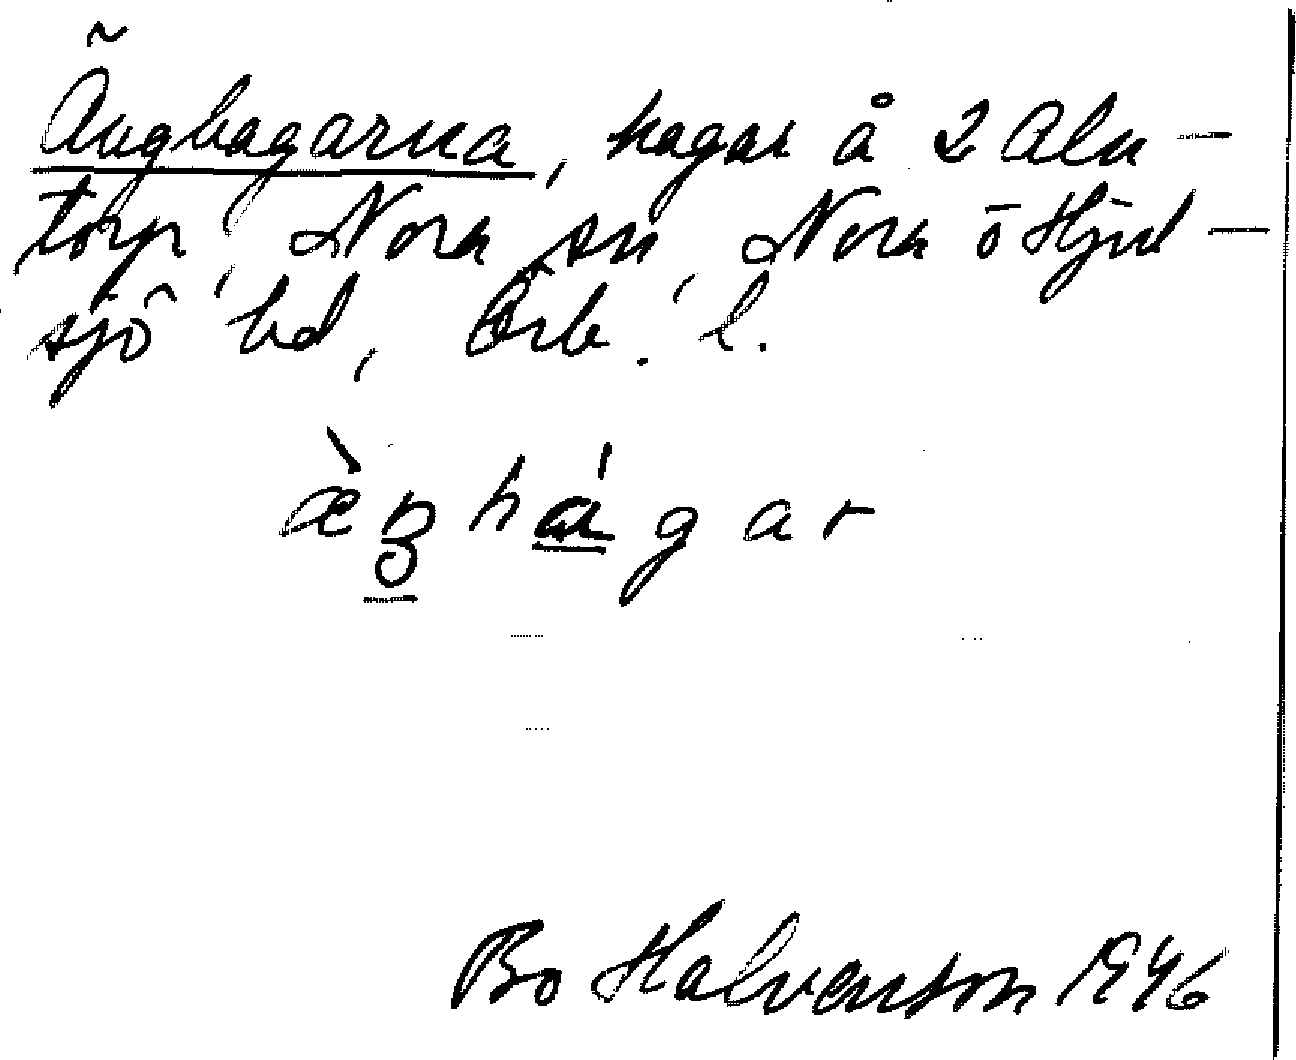 Änghagarna, hagar å 2 Aln-
torp, Nora sn, Nora ö Hjul-
sjö bd, Örb. l.
hágar
Bo Halvenson 1946